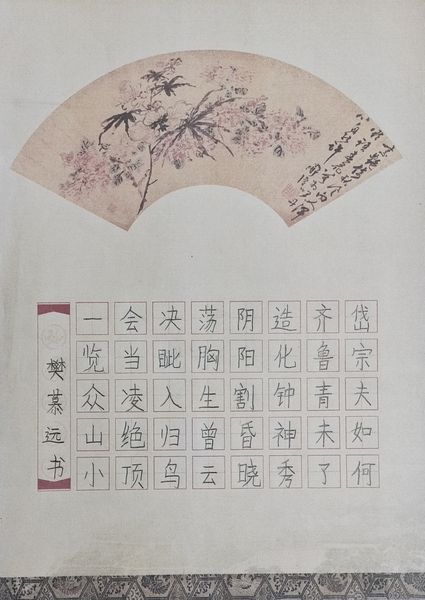 岱宗夫如何
齐鲁青未了
造化钟神秀
阴阳割昏晓
荡胸生曾云
决眦入归鸟
会当凌绝顶
一览众山小
樊慕远书